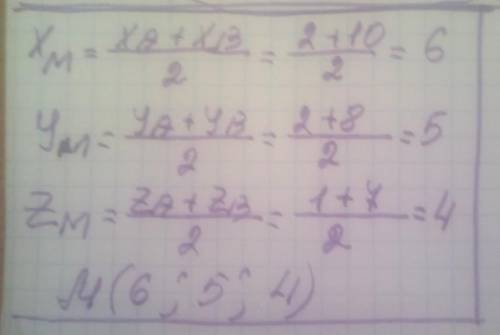 XM = (XA + XB)/2 = (2 + 10)/2 = 6
YM = (YA + YB)/2 = (2 + 8)/2 = 5
ZM = (ZA + ZB)/2 = (1 + 7)/2 = 4
M(6; 5; 4)